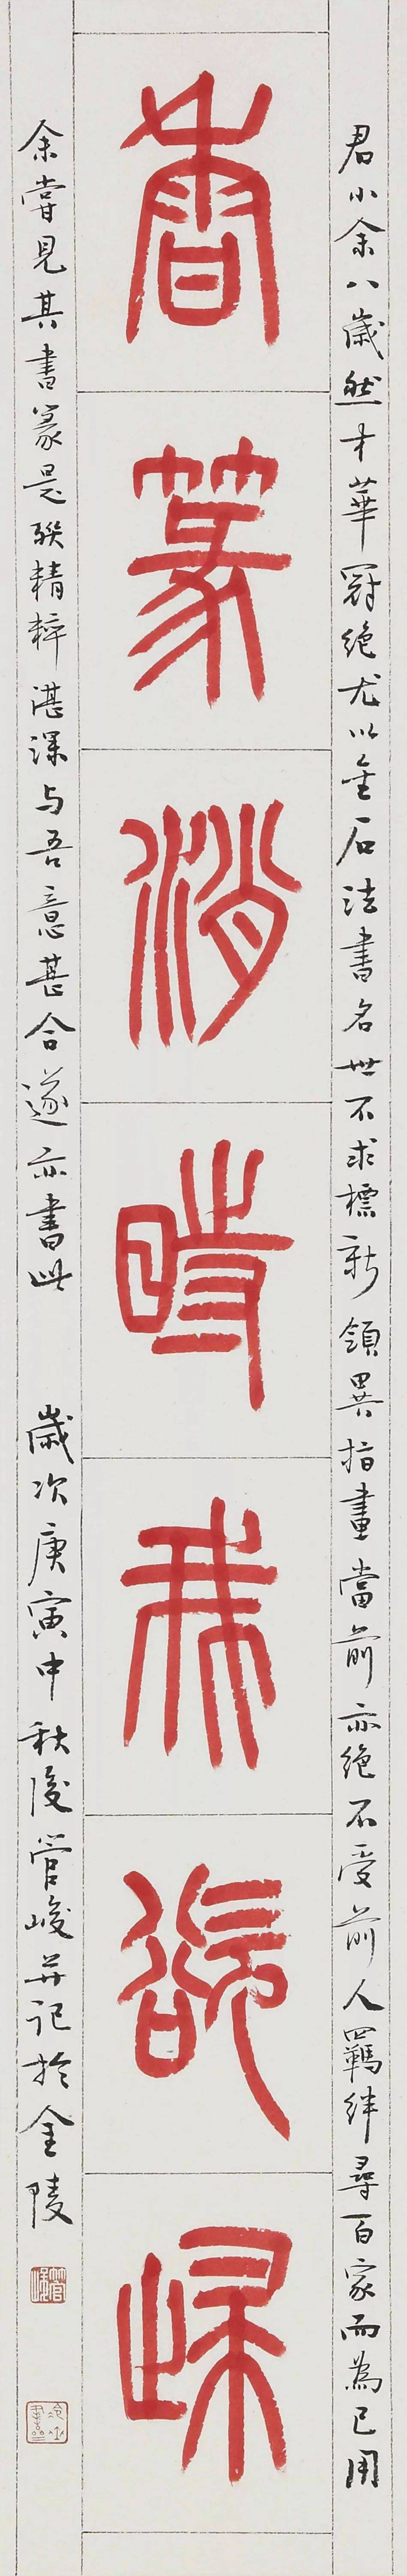 君小余八歲然才華冠絕尤以金石法書名世不求標新領異指畫當前亦絕不受前人羈絆尋百家而為己用
香篆消時我欲歸
余嘗見其書篆是聯精粹湛深与吾意甚合遂亦書此
歲次庚寅中秋後管峻并記於金陵
管峻